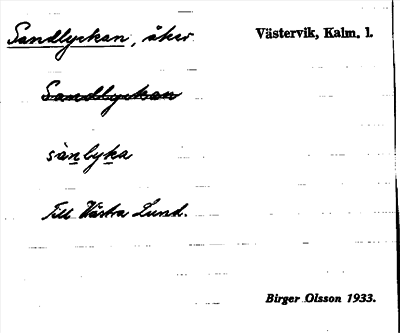 Sandlyckan, åker. Västervik, Kalm. l.
Sandlyckan
sànlyka
Till Västra Lund.
Birger Olsson 1933.